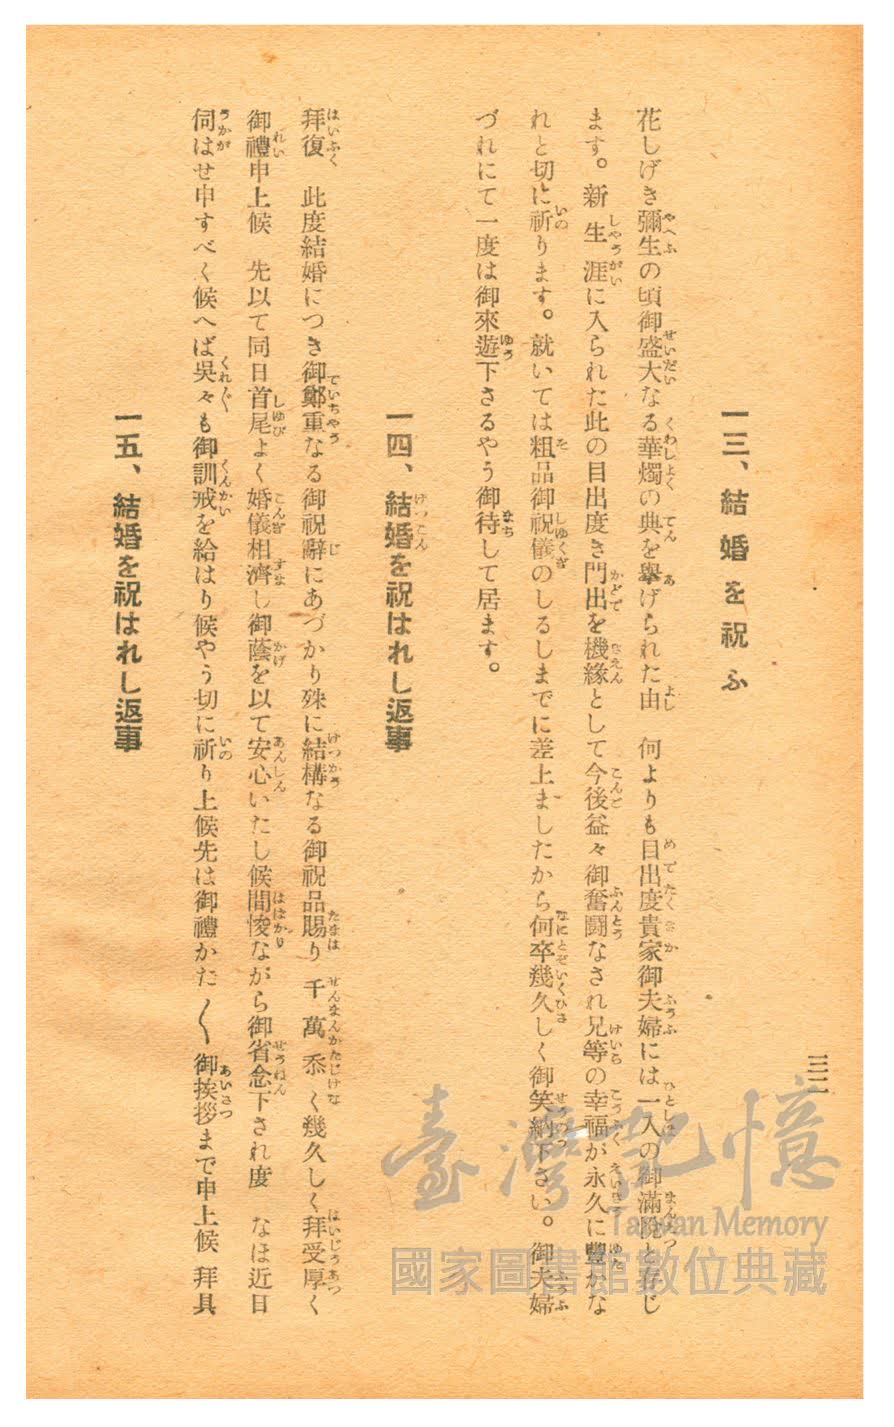 三二
一三、結婚を祝ふ
花しげき彌生の頃御盛大なる華燭の典を擧げられた由　何よりも目出度貴家御夫婦には一入の御滿悅と存じ
ます。新生涯に入られた此の目出度き門出を機緣として今後益々御奮鬪なされ兄等の幸福が永久に豐かな
れと切に祈ります。就いては粗品御祝儀のしるしまでに差上ましたから何卒幾久しく御笑納下さい。御夫婦
づれにて一度は御來遊下さるやう御待して居ます。
一四、結婚を祝はれし返事
拜復　此度結婚につき御鄭重なる御祝辭にあづかり殊に結構なる御祝品賜り千萬忝く幾久しく拜受厚く
御禮申上候　先以て同日首尾よく婚儀相濟し御蔭を以て安心いたし候間憚ながら御省念下され度　なほ近日
伺はせ申すべく候へば吳々も御訓戒を給はり候やう切に祈り上候先は御禮かた〱御挨拶まで申上候　拜具
一五、結婚を祝はれし返事
臺灣記憶
Taiwan Memory
國家圖書館數位典藏